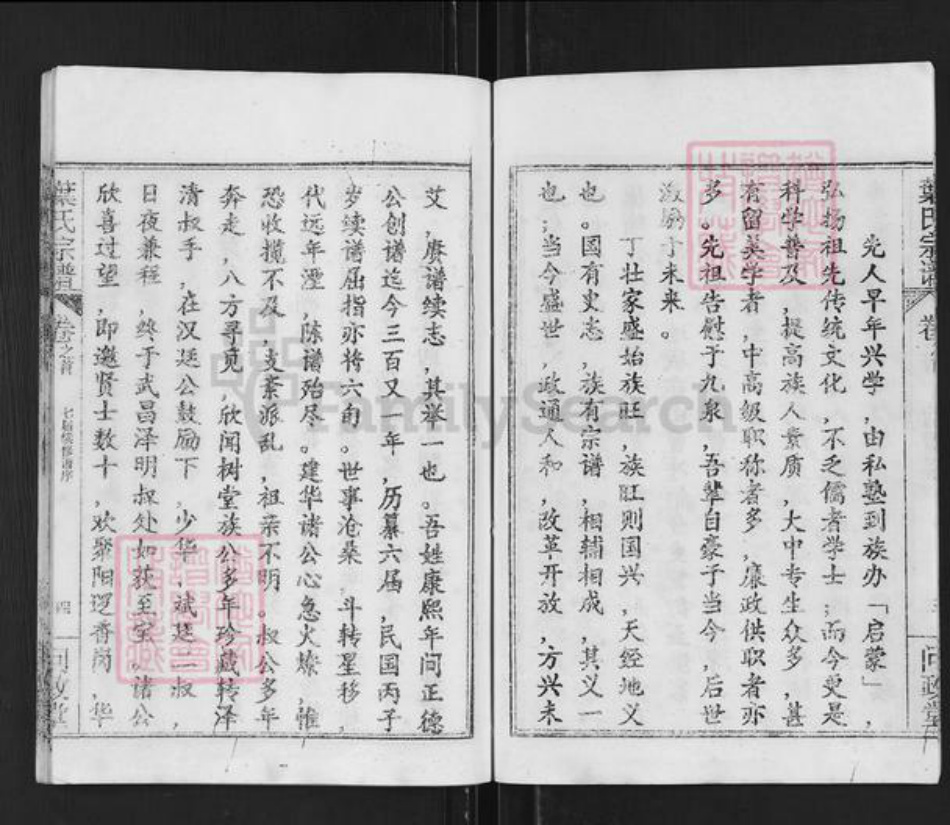 葉氏宗譜
卷
三
问政堂
先人早年兴学，由私塾到族办「启蒙」，
弘扬祖先传统文化，不乏儒者学士；而今更是
科学普及，提高族人素质，大中专生众多，甚
有留美学者，中高级职称者多，廉政供职者亦
多。先祖告慰于九泉，吾辈自豪于当今，后世
激励于未来。
丁壮家盛始族旺，族旺则国兴，天经地义
也。国有史志，族有宗谱，相辅相成，其义一
也；当今盛世，政通人和，改革开放，方兴未
艾，赓谱续志，其举一也。吾姓康熙年间正德
公创谱迄今三百又一年，历纂六届，民国丙子
岁续谱屈指亦将六旬。世事沧桑，斗转星移，
代远年湮，陈谱殆尽。建华诸公心急火燎，惟
恐收揽不及，支紊派乱，祖亲不明。叔公多年
奔走，八方寻觅，欣闻树堂族公多年珍藏转泽
清叔手，在汉廷公鼓励下，少华、斌廷二叔，
日夜兼程，终于武昌泽明叔处如获至宝。诸公
欣喜过望，即邀贤士数十，欢聚阳逻香岗，华
葉氏宗譜
卷之首
七届续修谱序
四
问政堂
FamilySearch